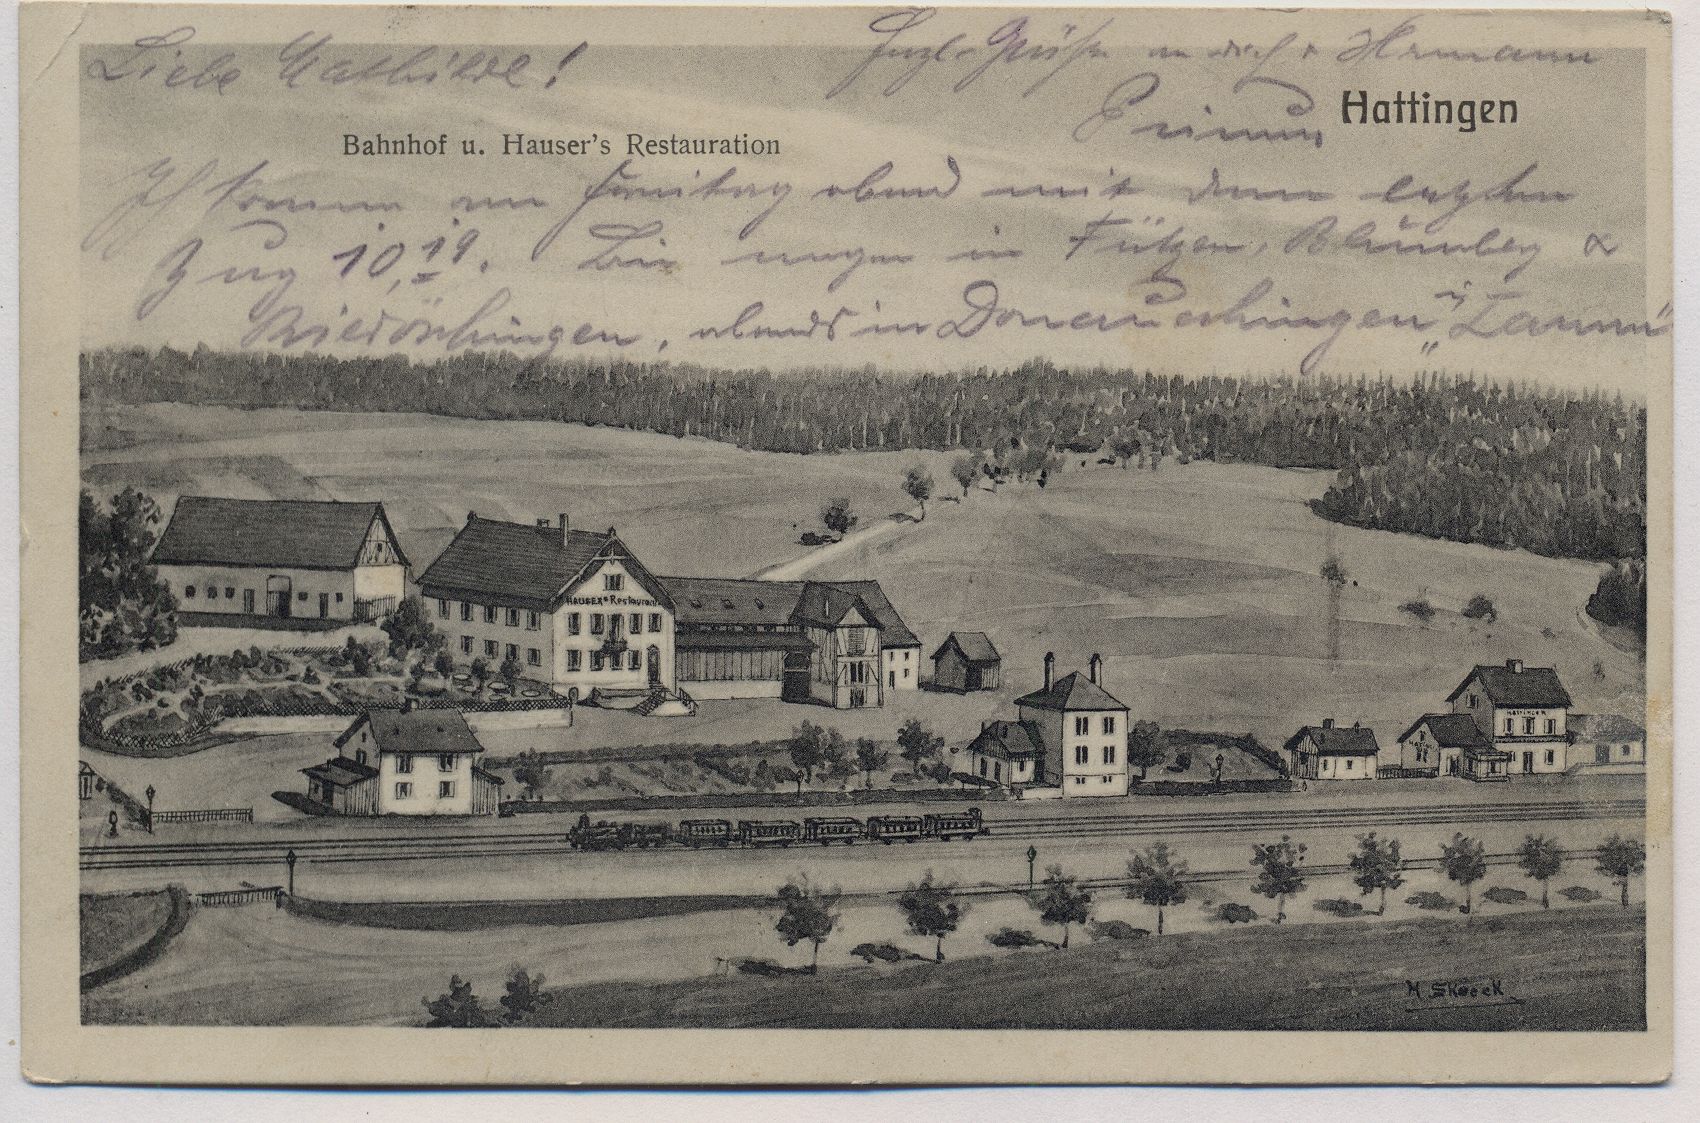 Liebe Mathilde!
Herzl. Grüße an dich & Hermann
Hattingen
Bahnhof u. Hauser's Restauration
Ich komme am Freitag abend mit dem letzten
Zug 10,19. Bin morgen in Fützen, Blumberg &
Riedöschingen, abends in Donaueschingen "z. Tanne"
HAUSER's Restaurant
HATTINGEN